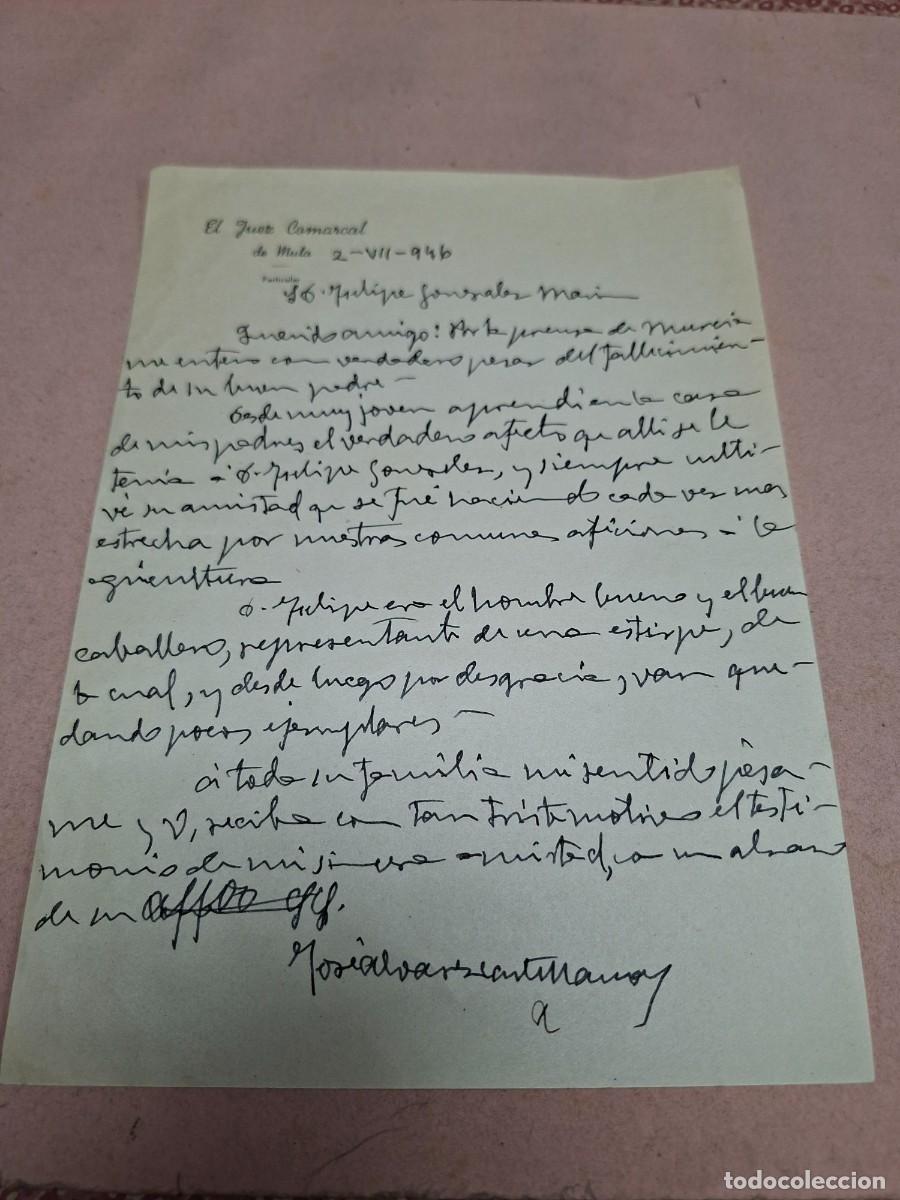 El Juez Comarcal
de Mula 2-VII-946
Particular
Sr D. Felipe Gonzalez Marin
Querido amigo: Por la prensa de Murcia
me entero con verdadero pesar del fallecimien-
to de su buen padre-
Desde muy joven aprendi en la casa
de mis padres el verdadero afecto que alli se le
tenia á D. Felipe Gonzalez, y siempre culti-
vé su amistad que se fué haciendo cada vez mas
estrecha por nuestras comunes aficiones á la
agricultura
D. Felipe era el hombre bueno y el buen
caballero, representante de una estirpe, de
la cual, y desde luego por desgracia, van que-
dando pocos ejemplares-
A toda su familia mi sentido pésa-
me y V, reciba con tan triste motivo el testi-
monio de mi sincera amistad, con un abrazo
de su affmo
José Alvarez
todocoleccion